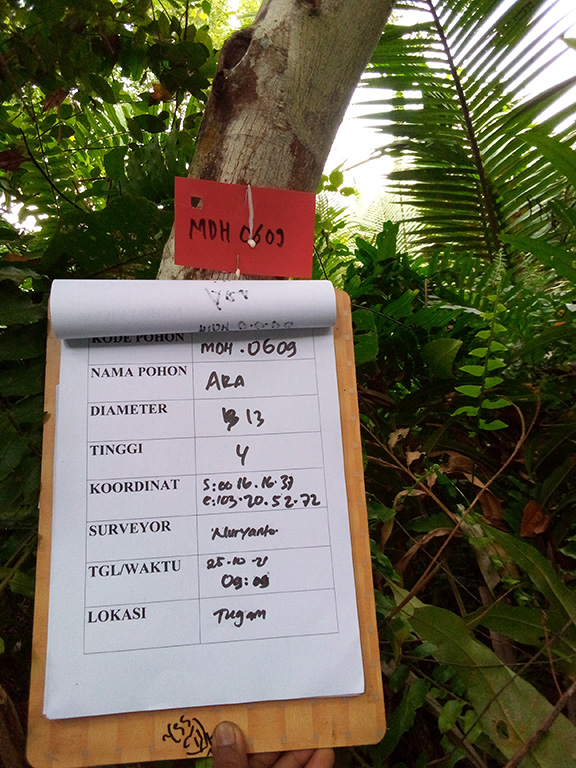 MDH 0609
KODE POHON MDH.0609
NAMA POHON ARA
DIAMETER 13
TINGGI 4
KOORDINAT S:00.16.16.37
E:103.20.52.72
SURVEYOR Nuryanto
TGL/WAKTU 25.10.21
09:09
LOKASI Tugam